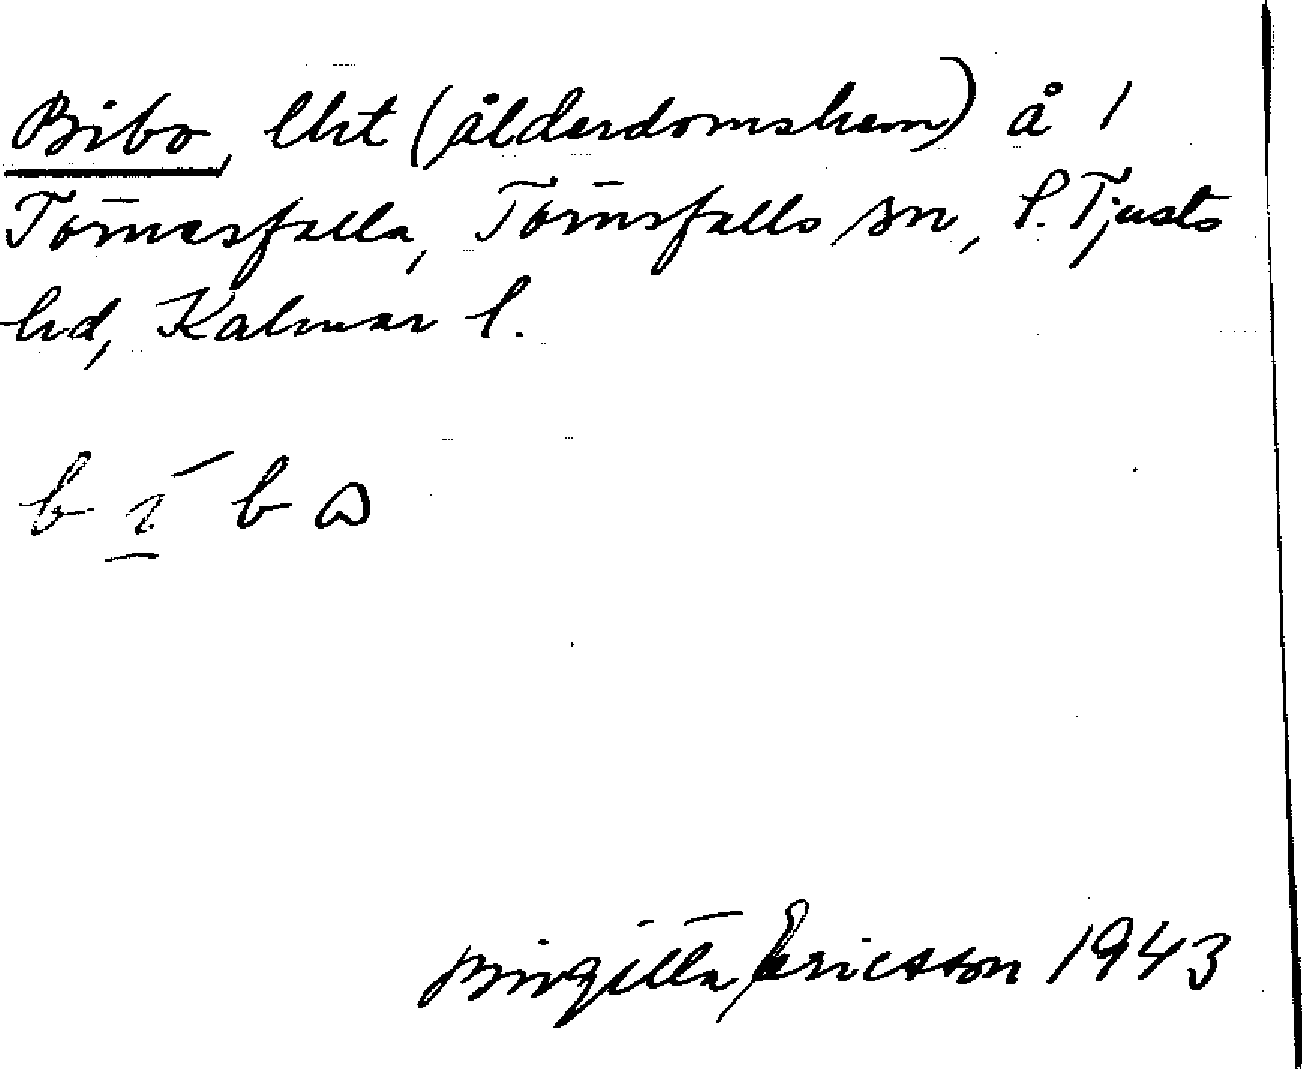 Bibo, lht (ålderdomshem) å 1
Törnesfalla, Törnsfalls sn, S. Tjusts
hd, Kalmar l.
b i b ω
Birgitta Ericsson 1943